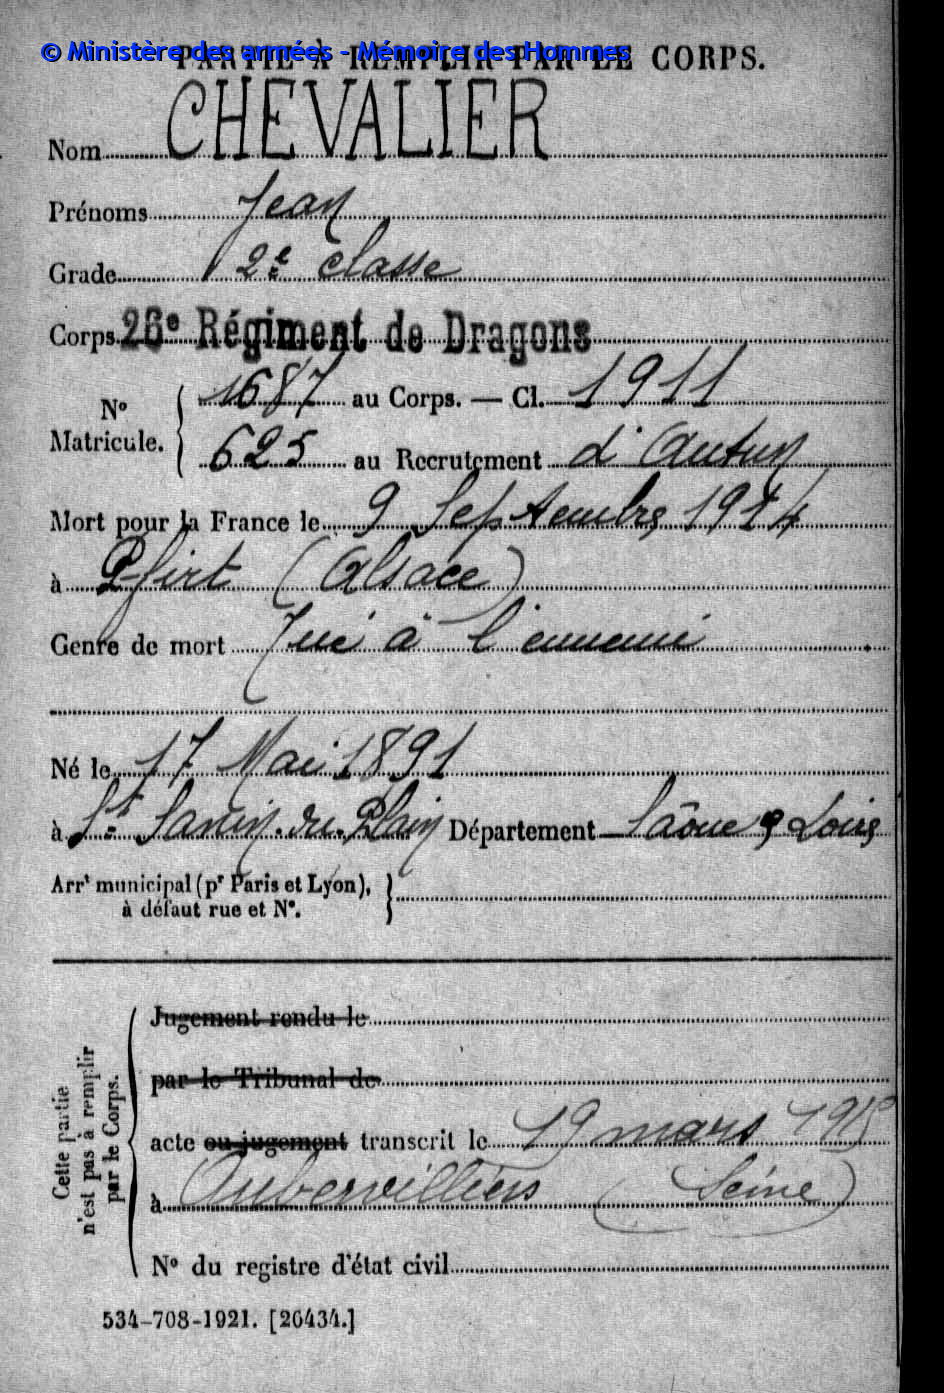 © Ministère des armées - Mémoire des Hommes
PARTIE À REMPLIR PAR LE CORPS.
Nom CHEVALIER
Prénoms Jean
Grade 2e classe
Corps 26e Régiment de Dragons
No Matricule. { 1687 au Corps. — Cl. 1911
625 au Recrutement d'Autun
Mort pour la France le 9 Septembre 1914
à Pfirt (Alsace)
Genre de mort Tué à l'ennemi
Né le 17 Mai 1891
à St. Sernin. du. Plain Département Saône & Loire
Arrt municipal (pr Paris et Lyon),
à défaut rue et No.
Cette partie
n'est pas à remplir
par le Corps.
Jugement rendu le
par le Tribunal de
acte ou jugement transcrit le 19 mars 1915
à Aubervilliers (Seine)
No du registre d'état civil
534-708-1921. [26434.]